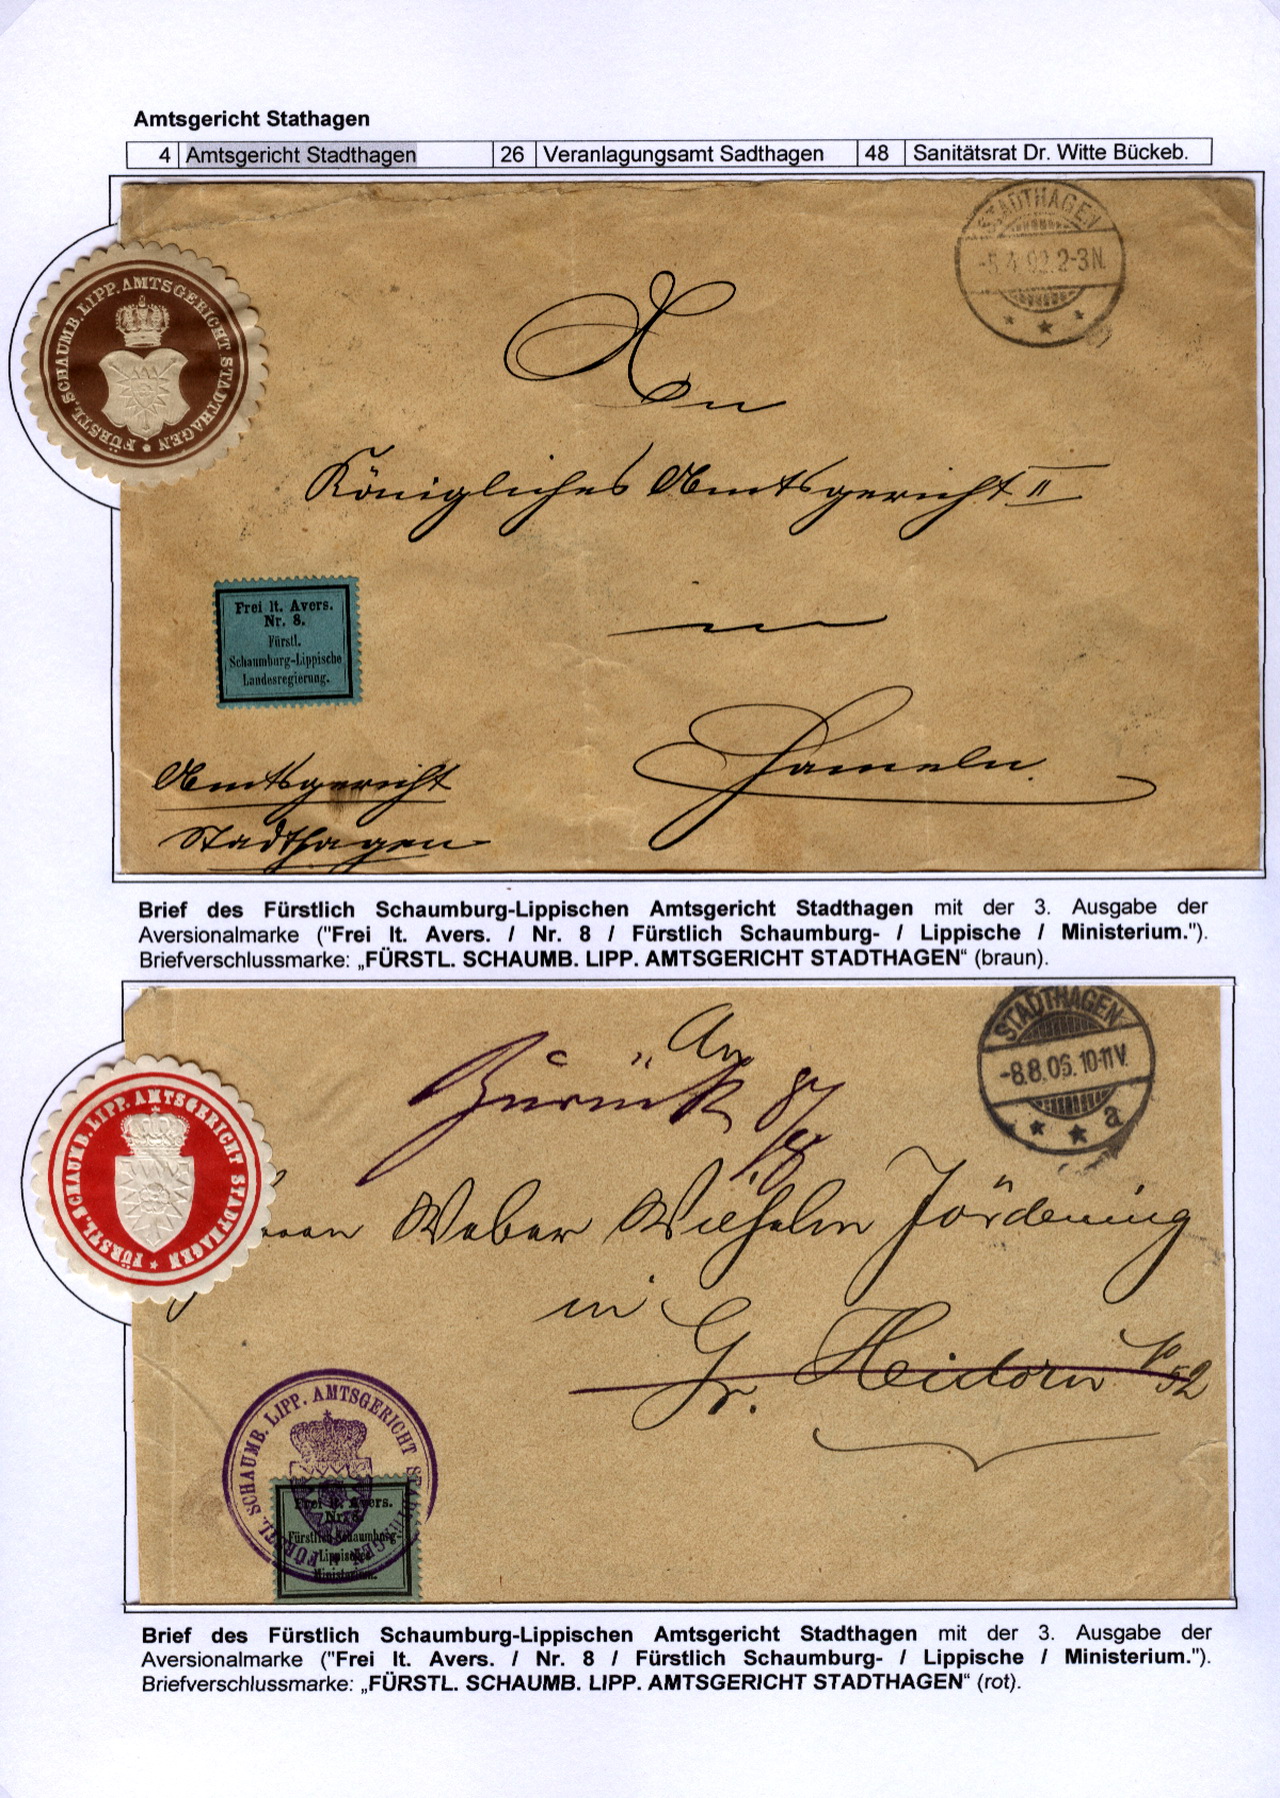 Amtsgericht Stathagen
4 Amtsgericht Stadthagen 26 Veranlagungsamt Sadthagen 48 Sanitätsrat Dr. Witte Bückeb.
STADTHAGEN
-5.4.92.2-3N.
FÜRSTL. SCHAUMB. LIPP. AMTSGERICHT STADTHAGEN *
An
Königliches Amtsgericht II
in
Hameln.
Frei lt. Avers.
Nr. 8.
Fürstl.
Schaumburg-Lippische
Landesregierung.
Amtsgericht
Stadthagen
Brief des Fürstlich Schaumburg-Lippischen Amtsgericht Stadthagen mit der 3. Ausgabe der
Aversionalmarke ("Frei lt. Avers. / Nr. 8 / Fürstlich Schaumburg- / Lippische / Ministerium.").
Briefverschlussmarke: „FÜRSTL. SCHAUMB. LIPP. AMTSGERICHT STADTHAGEN“ (braun).
STADTHAGEN
-8.8.06.10-11V.
* * a
An
Zurück 8/8
FÜRSTL. SCHAUMB. LIPP. AMTSGERICHT STADTHAGEN *
Weber Wilhelm Jördening
in
Gr. Heidorn No 52
FÜRSTL. SCHAUMB. LIPP. AMTSGERICHT STADTHAGEN
Frei lt. Avers.
Nr. 8.
Fürstlich Schaumburg-
Lippisches
Ministerium.
Brief des Fürstlich Schaumburg-Lippischen Amtsgericht Stadthagen mit der 3. Ausgabe der
Aversionalmarke ("Frei lt. Avers. / Nr. 8 / Fürstlich Schaumburg- / Lippische / Ministerium.").
Briefverschlussmarke: „FÜRSTL. SCHAUMB. LIPP. AMTSGERICHT STADTHAGEN“ (rot).